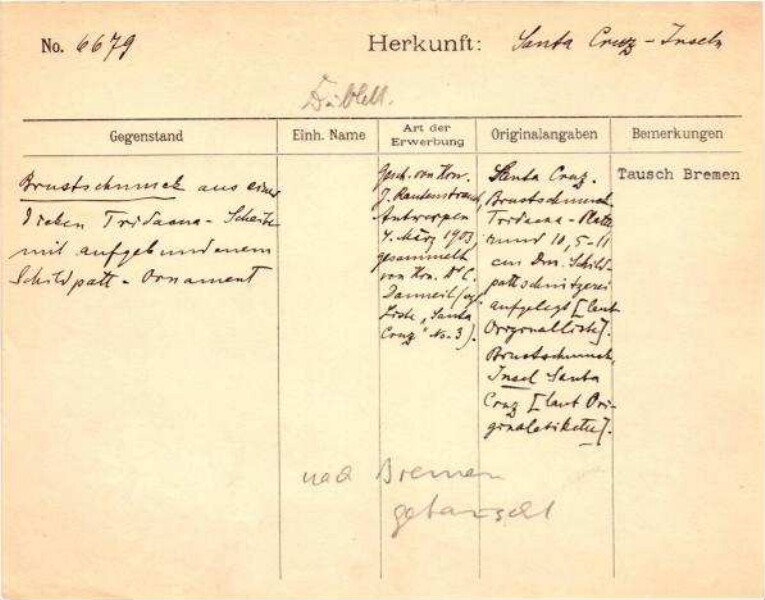 No. 6679 Herkunft: Santa Cruz - Inseln
Dublett.
Gegenstand Einh. Name Art der Erwerbung Originalangaben Bemerkungen
Brustschmuck aus einer
dicken Tridacna - Scheibe
mit aufgebundenem
Schildpatt - Ornament
Gesch. von Hrn.
J. Rautenstrauch,
Antwerpen
4. März 1903,
gesammelt
von Hrn. Dr. C.
Danneil (cf.
Liste „Santa
Cruz" No. 3).
Santa Cruz.
Brustschmuck
Tridacna - Platte
rund 10,5-11
cm Dm. Schild-
pattschnitzerei
aufgelegt [laut
Originalliste].
Brustschmuck,
Insel Santa
Cruz [laut Ori-
ginaletikette].
Tausch Bremen
nach Bremen
getauscht